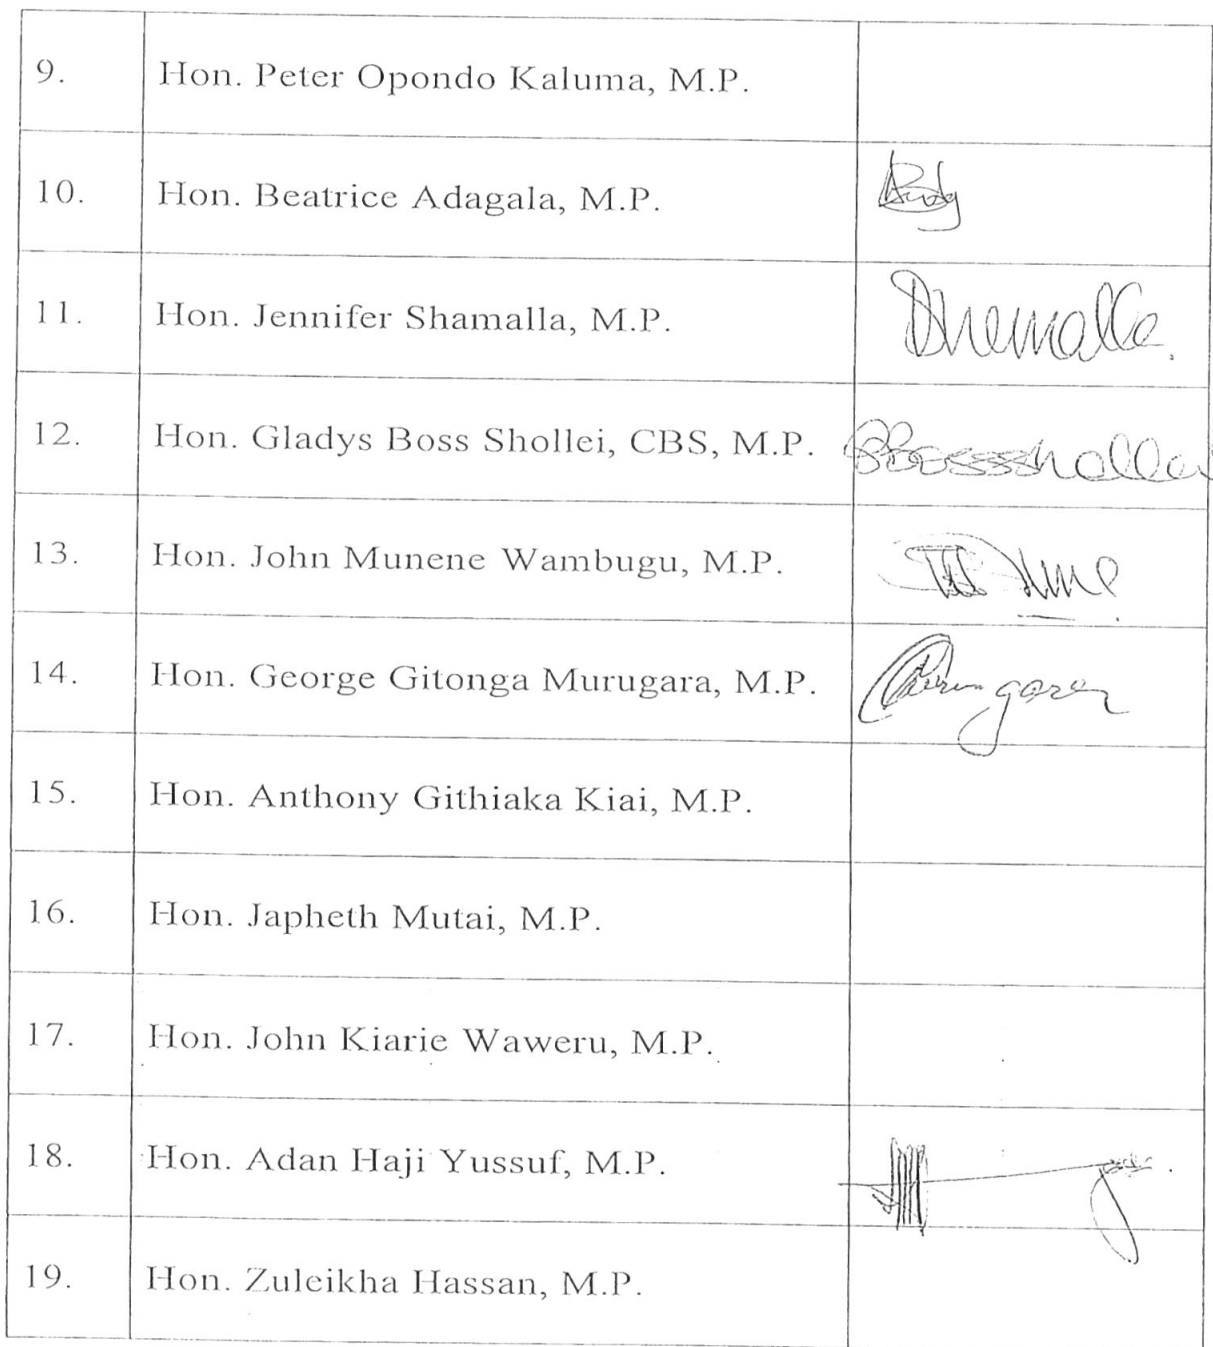 9. Hon. Peter Opondo Kaluma, M.P.
10. Hon. Beatrice Adagala, M.P.
11. Hon. Jennifer Shamalla, M.P.
12. Hon. Gladys Boss Shollei, CBS, M.P.
13. Hon. John Munene Wambugu, M.P.
14. Hon. George Gitonga Murugara, M.P.
15. Hon. Anthony Githiaka Kiai, M.P.
16. Hon. Japheth Mutai, M.P.
17. Hon. John Kiarie Waweru, M.P.
18. Hon. Adan Haji Yussuf, M.P.
19. Hon. Zuleikha Hassan, M.P.